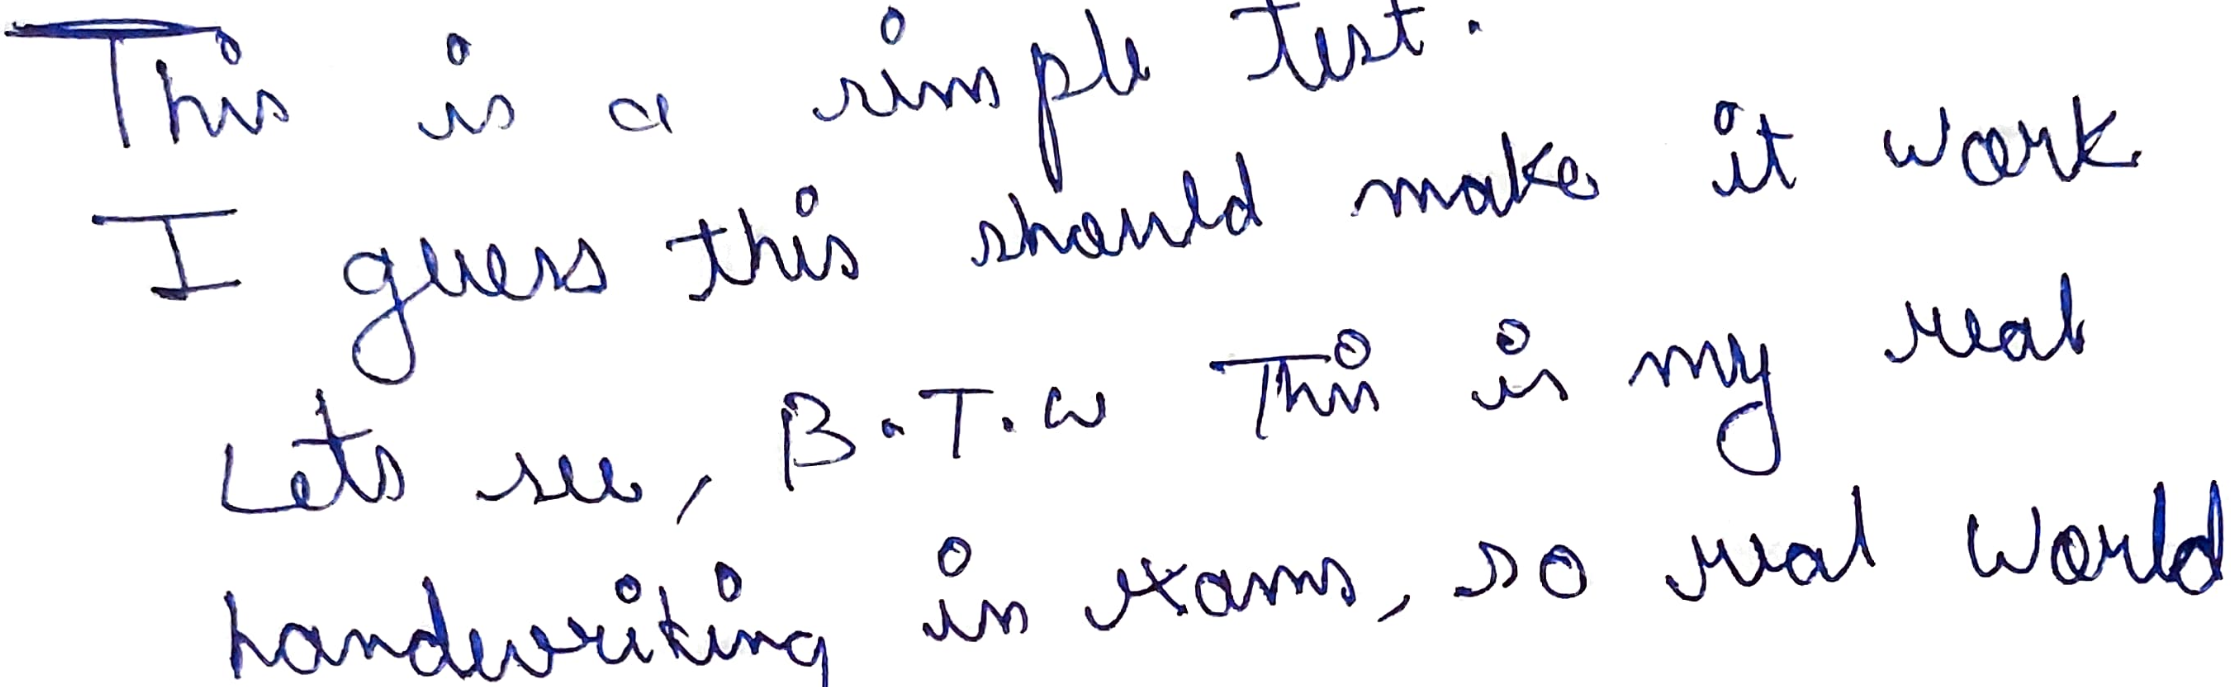 This is a simple test.
I guess this should make it work
Lets see, B.T.W This is my real
handwriting in exams, so real world